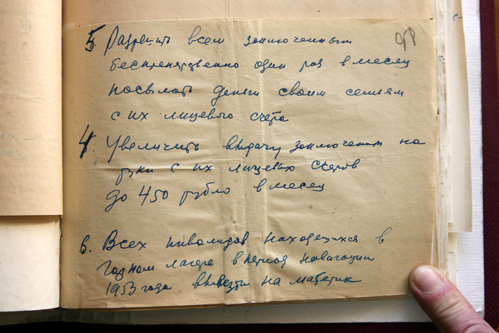 98
5. Разрешить всем заключенным
беспрепятственно один раз в месяц
посылать деньги своим семьям
с их лицевого счета
4. Увеличить выдачу заключенным на
руки с их лицевых счетов
до 450 рубле в месяц
6. Всех инвалидов находящихся в
Горном лагере в период навигации
1953 года вывезти на материк